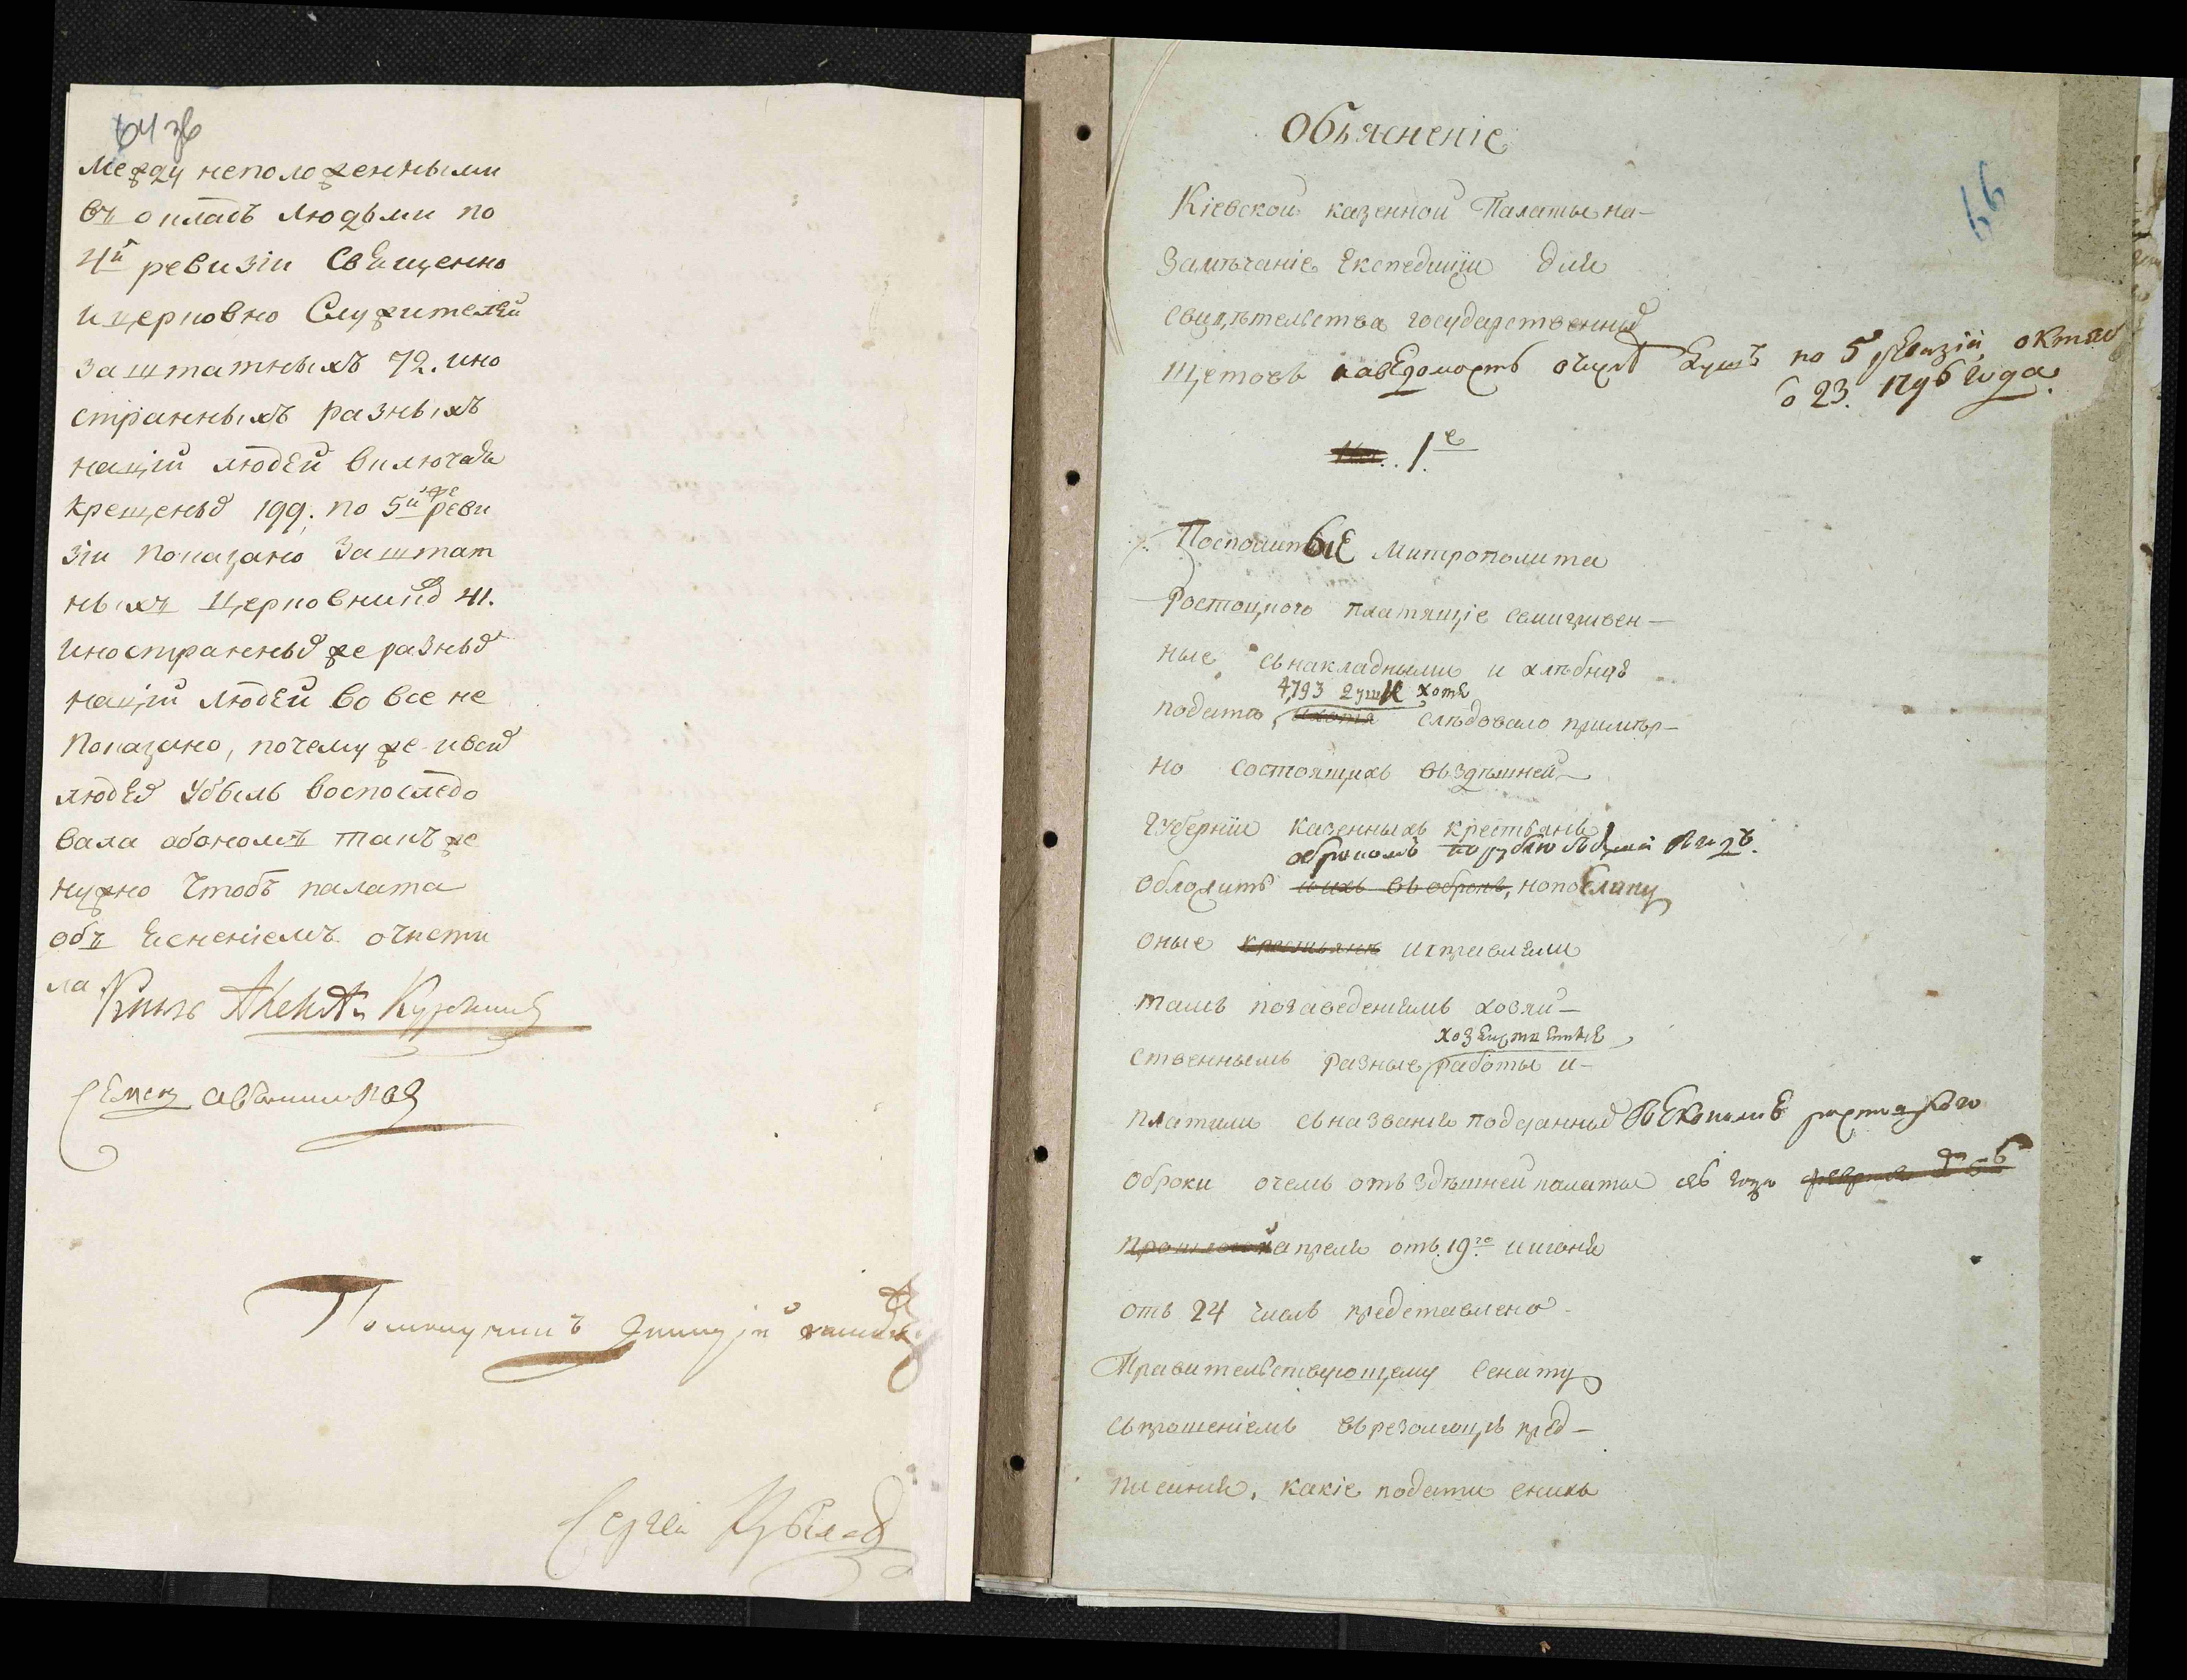 64 зв
между неположенными
въ окладъ людьми по
4й ревизіи Священно
и церковно Служителей
заштатныхъ 72. ино
странныхъ разныхъ
націй людей включая
крещеныхъ 199. по 5й же реви
зіи показано заштат
ныхъ церковниковъ 41.
иностранныхъ же разныхъ
націй людей вовсе не
показано, почему же и всѣхъ
людей убыль воспослѣдо
вала обономъ такъ же
нужно чтобъ палата
объ ясненіемъ очисти
ла
Князь Алексѣй Куракинъ
Семен
Сергей
Объясненіе
66
Кіевской казенной Палаты на-
Замѣчаніе Експедиціи для
свидѣтельства государственныхъ
Щетовъ наведомость очислѣ душъ по 5 ревизіи октяб
о 23. 1796 года.
1е
Посполитые Митрополита
Ростоцкого платящіе
ные сънакладными и хлѣбную
4793 души хотя
подать, ихотя слѣдовало примѣр-
но состоящихъ въздѣшней
Губерніи казенныхъ крестьянъ
оброкомъ по рублю
обложить и ихъ въ оброкъ, нопоелику
оные крестьяне исправляли
тамъ позаведеніямъ хозяй-
ственнымъ разные работы и-
платили съназванія подданныхъ
оброки очемъ отъ здѣшней палаты сего года
прошлого апреля отъ 19го ииюня
отъ 24 числъ представлено
Правительствующему Сенату
съпрошеніемъ врезолюцію пред-
писанія, какіе подати сникъ